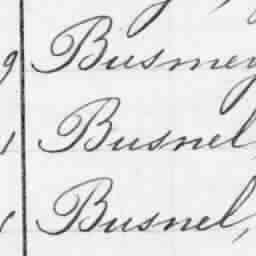 9 Busmey
1 Busnel,
Busnel,